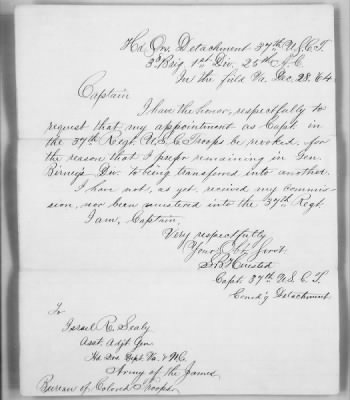 Hd Qrs. Detachment 37th U.S.C.T.
3d Brig 1st Div. 25th A.C.
In the field Va. Dec. 28. 64
Captain
I have the honor, respectfully to
request that my appointment as Capt. in
the 37th Regt. U.S.C. Troops be revoked, for
the reason that I prefer remaining in Gen.
Birneys Div. to being transfered into another.
I have not, as yet, recived my commis-
sion, nor been mustered into the 37th Regt.
I am, Captain,
Very respectfully
Your Obt. Servt.
Capt. 37th U.S.C.T.
Comd'g Detachment
To
Israel R. Sealy
Asst. Adjt. Gen.
Hd Qrs Dept. Va. & N.C.
Army of the James
Bureau of Colored Troops